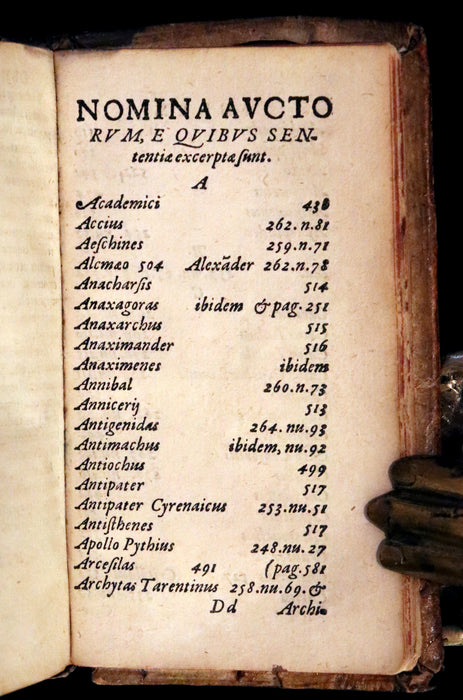 NOMINA AVCTO
RVM, E QVIBVS SEN-
tentiæ excerptæ ſunt.
A
Academici 438
Accius 262.n.81
Aeſchines 259.n.71
Alcmæo 504 Alexãder 262.n.78
Anacharſis 514
Anaxagoras ibidem & pag.251
Anaxarchus 515
Anaximander 516
Anaximenes ibidem
Annibal 260.n.73
Annicerij 513
Antigenidas 264.nu.93
Antimachus ibidem, nu.92
Antiochus 499
Antipater 517
Antipater Cyrenaicus 253.nu.51
Antiſthenes 517
Apollo Pythius 248.nu.27
Arceſilas 491 (pag.581
Archytas Tarentinus 258.nu.69.&
Dd Archi-